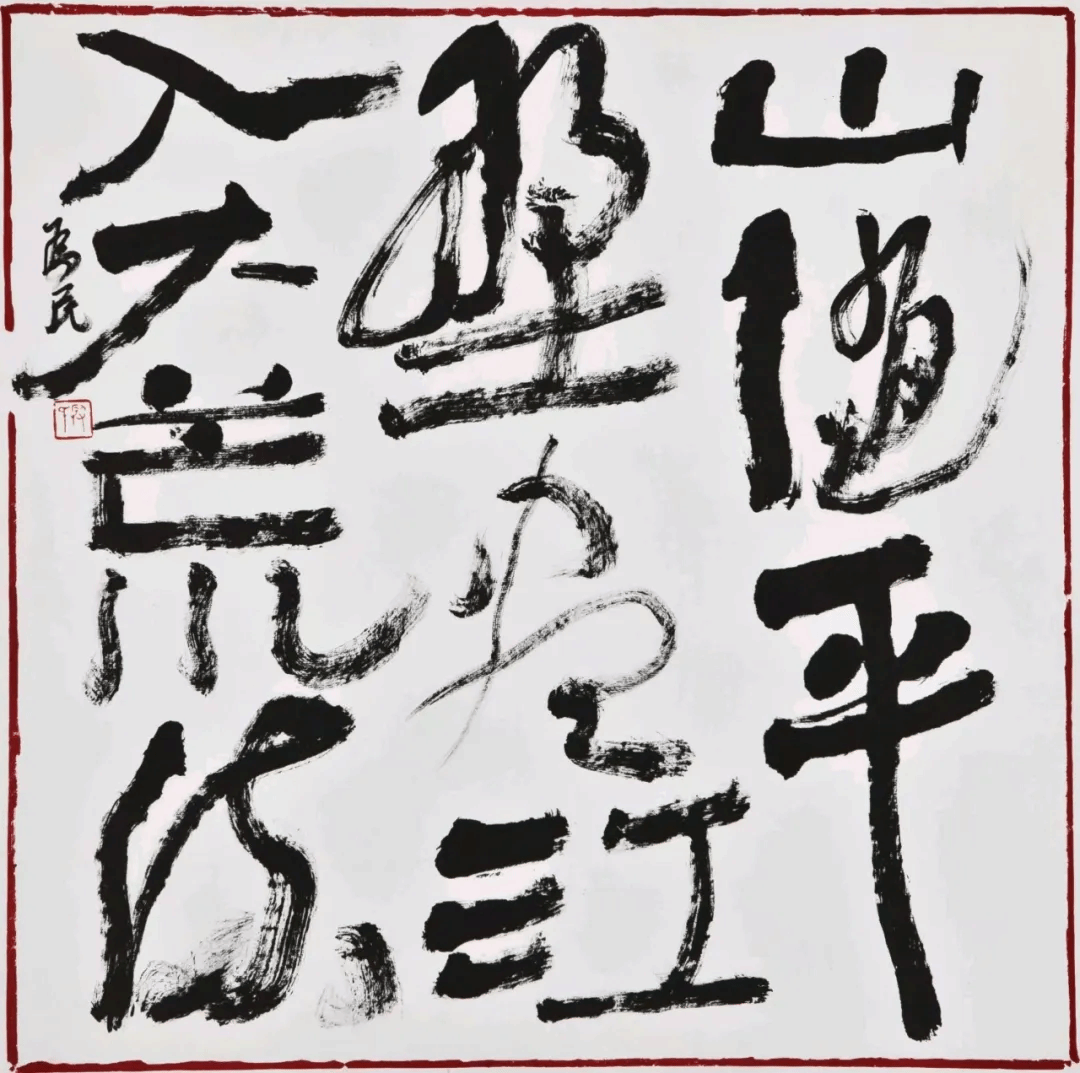 山随平
野尽江
入大荒流
为民